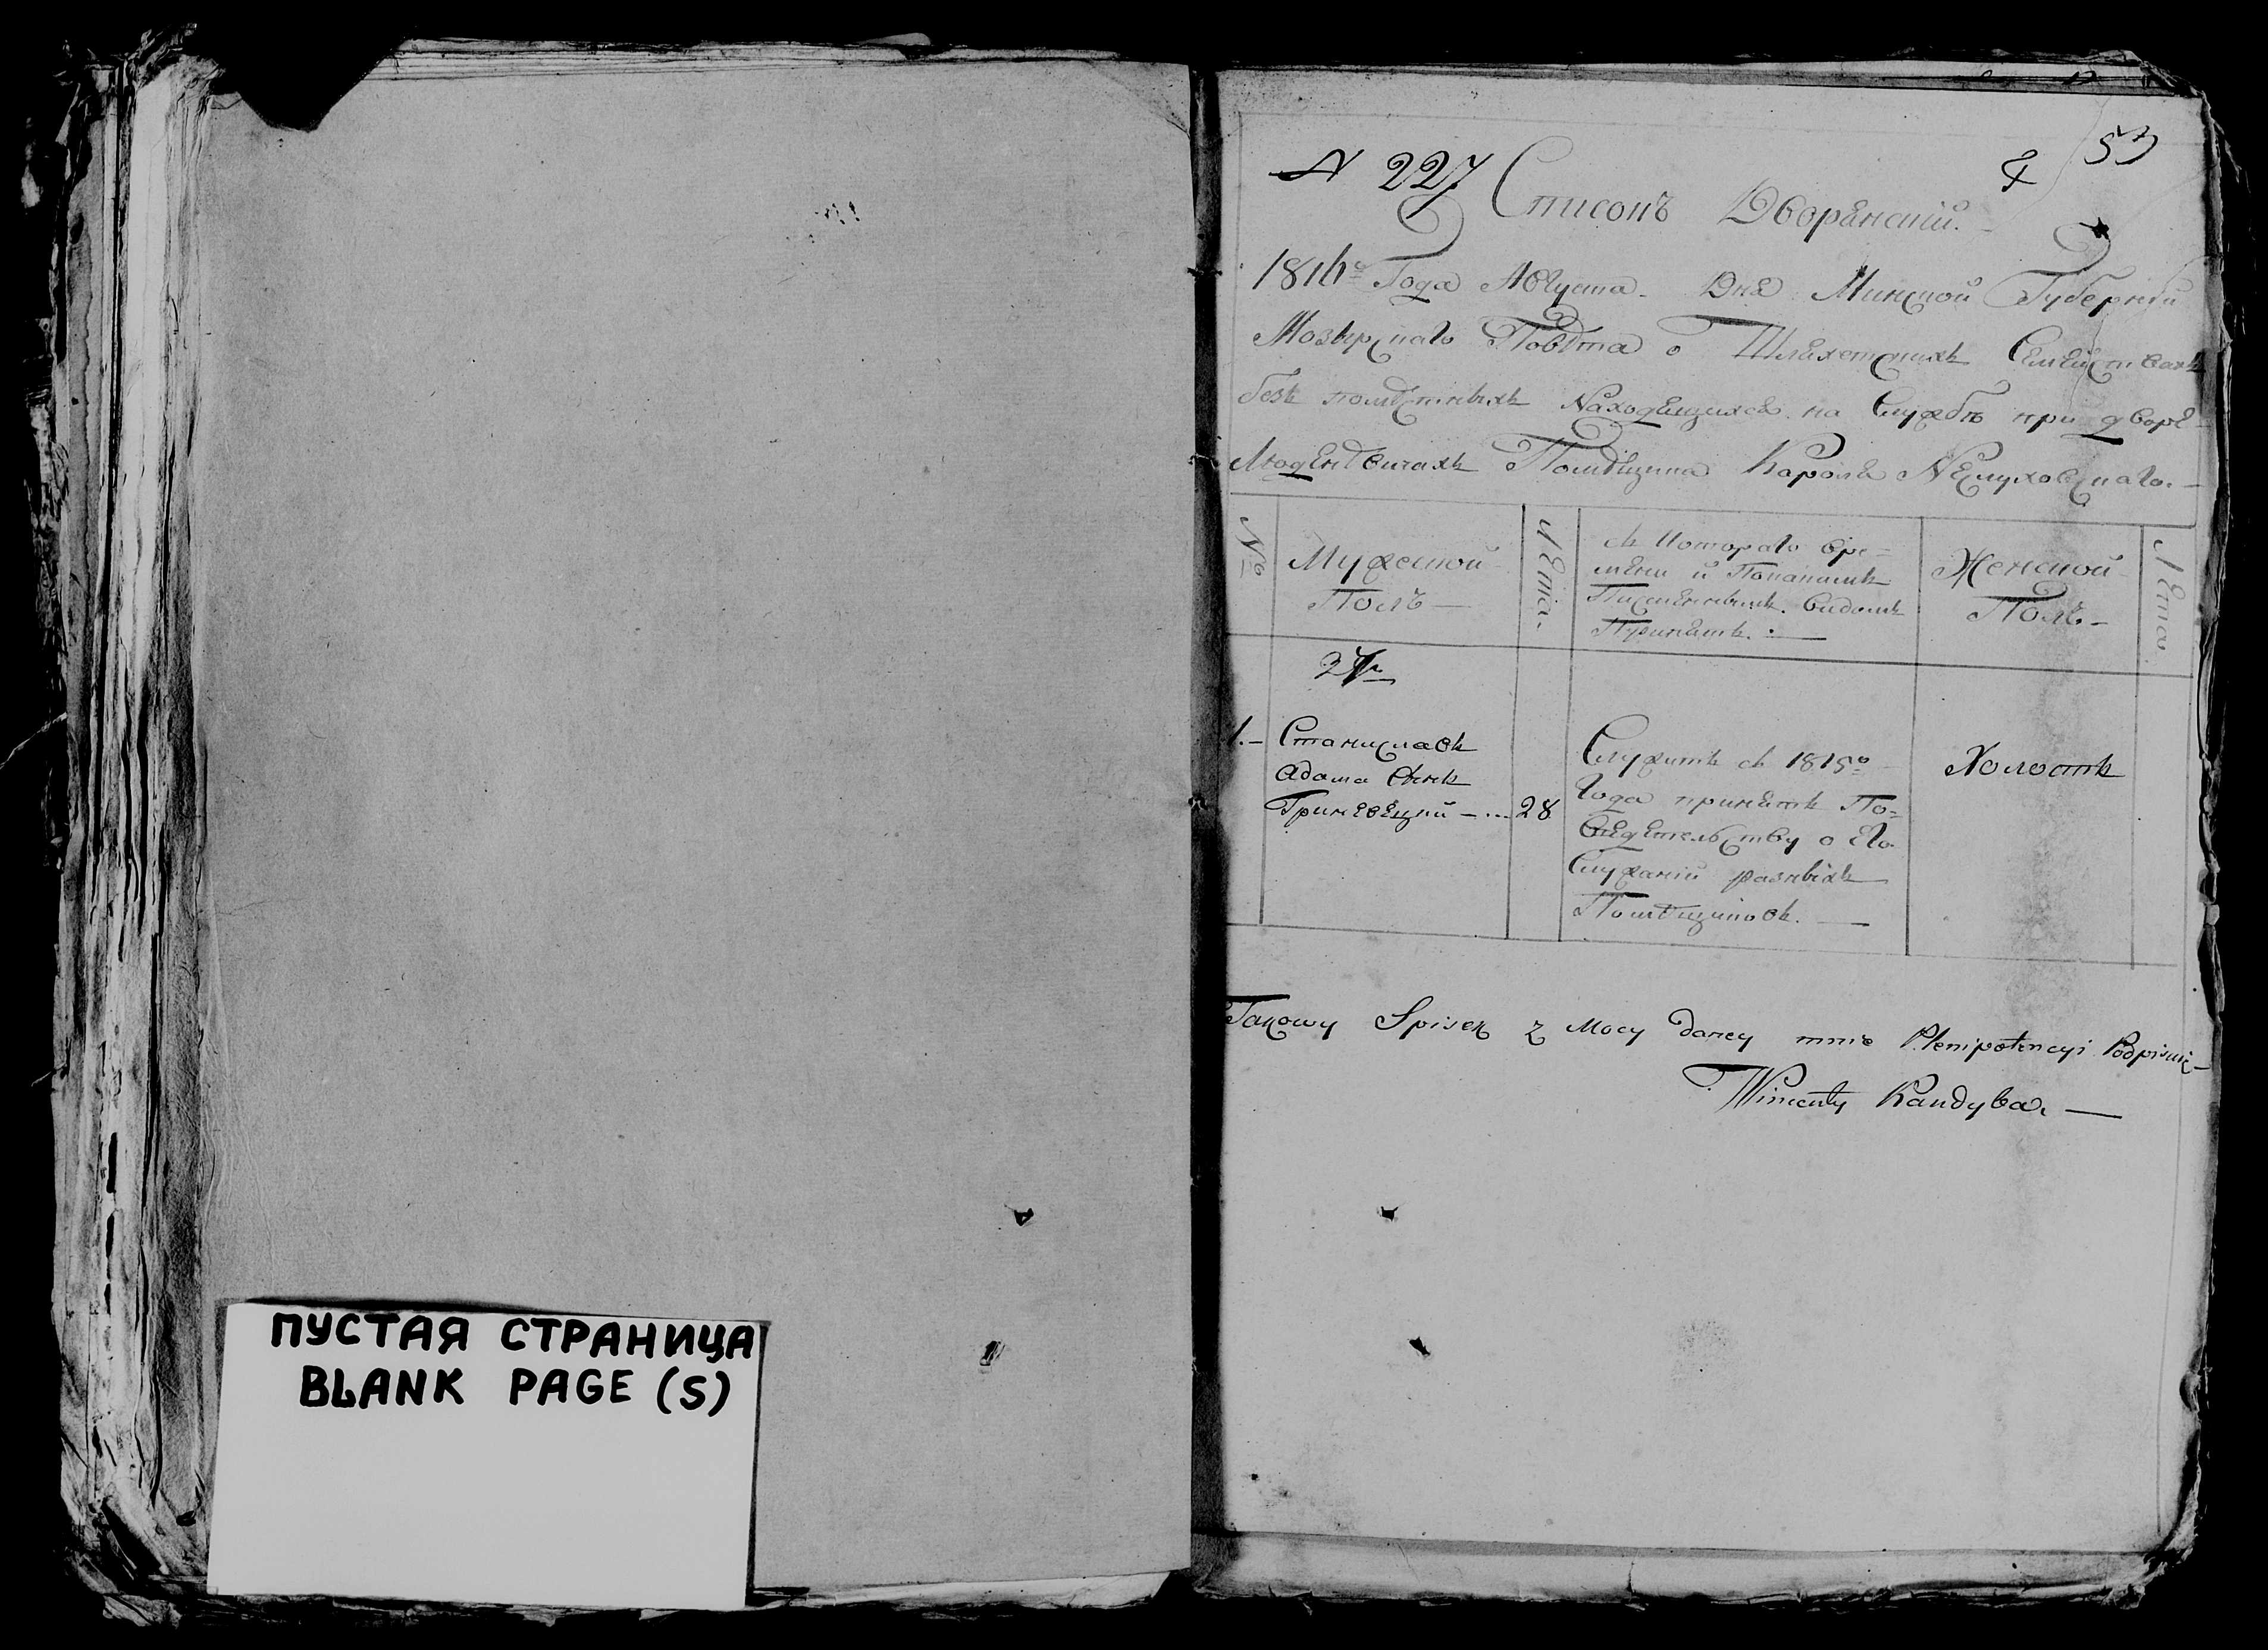 ПУСТАЯ СТРАНИЦА
BLANK PAGE (S)
№ 227 Списокъ Дворянскій.
53
1816го Года Августа Дня Минской Губерніи
Мозырскаго Повѣта о Шляхетскихъ Семействахъ
безъ помѣстныхъ Находящихся на Службѣ при дворѣ
Помѣщика Кароля
№
Мужеской
Полъ
Лѣта.
съ Котораго вре-
мени и По каким
Писменнымъ видомъ
Принятъ.
Женской
Полъ
Лѣта
1. Станиславъ
Адама Сынъ
Гриневецкій 28
Служитъ съ 1815го
Года принятъ По
Свѣдѣтельству о его
Служеніи разныхъ
Помѣщиковъ.
Холостъ
Takowy Spisek z Mocy daney mnie Plenipotencyi Podpisuię
Wincenty Kandyba.